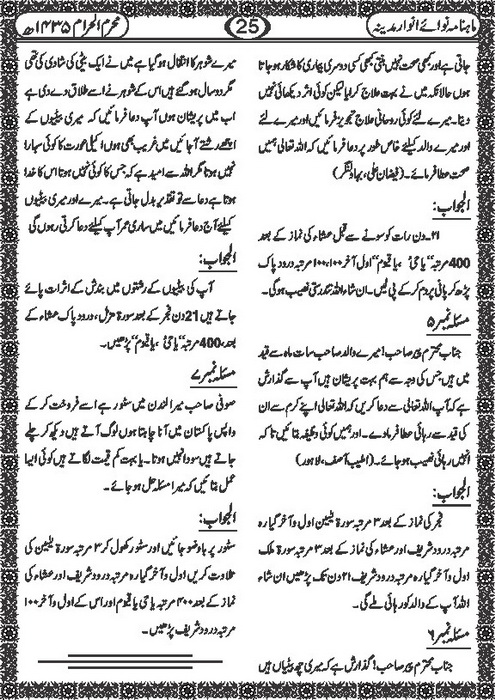 ماہنامہ نوائے انوار مدینہ
25
محرم الحرام ۱۴۳۵ھ
جاتی ہے اور کبھی صحت نہیں بنتی کبھی کسی دوسری بیماری کا شکار ہو جاتا
ہوں حالانکہ میں نے بہت علاج کرایا لیکن کوئی اثر دیکھائی نہیں
دیتا۔ میرے لئے کوئی روحانی علاج تجویز فرمائیں اور میرے لئے
اور میرے والد کیلئے خاص طور پر دعا فرمائیں کہ اللہ تعالیٰ ہمیں
صحت عطا فرمائے۔ (فیضان علی، بہاولنگر)
الجواب:
۲۱۔ دن رات کو سونے سے قبل عشاء کی نماز کے بعد
400 مرتبہ "یا حیُّ ، یا قیوم" اول آخر ۱۰۰،۱۰۰ مرتبہ درود پاک
پڑھ کر پانی پر دم کر کے پی لیں۔ ان شاء اللہ تندرستی نصیب ہوگی۔
مسئلہ نمبر ۵
جناب محترم پیر صاحب! میرے والد صاحب سات ماہ سے قید
میں ہیں جس کی وجہ سے ہم بہت پریشان ہیں آپ سے گذارش
ہے کہ آپ اللہ تعالیٰ سے دعا کریں کہ اللہ تعالیٰ اپنے کرم سے ان
کی قید سے رہائی عطا فرمادے۔ اور ہمیں کوئی وظیفہ بتائیں تا کہ
انہیں رہائی نصیب ہو جائے۔ (طیب آصف، لاہور)
الجواب:
فجر کی نماز کے بعد ۳ مرتبہ سورۃ یٰسین اول و آخر گیارہ
مرتبہ درود شریف اور عشاء کی نماز کے بعد ۳ مرتبہ سورۃ ملک
اول و آخر گیارہ مرتبہ درود شریف ۲۱ دن تک پڑھیں ان شاء
اللہ آپ کے والد کو رہائی ملے گی۔
مسئلہ نمبر ۶
جناب محترم پیر صاحب! گذارش ہے کہ میری چھ بیٹیاں ہیں
میرے شوہر کا انتقال ہو گیا ہے میں نے ایک بیٹی کی شادی کی تھی
مگر دو سال ہو گئے ہیں اس کے شوہر نے اسے طلاق دے دی ہے
اب میں پریشان ہوں آپ دعا فرمائیں کہ میری بیٹیوں کے
اچھے رشتے آجائیں میں غریب بھی ہوں اکیلی عورت کا کوئی سہارا
نہیں ہوتا مگر اللہ سے امید ہے کہ جس کا کوئی نہیں ہوتا اس کا خدا
ہوتا ہے دعا سے تقدیر بدل جاتی ہے۔ میرے اور میری بیٹیوں
کیلئے آج دعا فرمائیں میں ساری عمر آپ کیلئے دعا کرتی رہوں گی
الجواب:
آپ کی بیٹیوں کے رشتوں میں بندش کے اثرات پائے
جاتے ہیں 21 دن فجر کے بعد سورۃ مزمل، درود پاک عشاء کے
بعد، 400 مرتبہ "یا حیُّ ، یا قیوم" پڑھیں۔
مسئلہ نمبر ۷
صوفی صاحب میرا لندن میں سٹور ہے اسے فروخت کر کے
واپس پاکستان میں آنا چاہتا ہوں لوگ آتے ہیں دیکھ کر چلے
جاتے ہیں سودا نہیں ہوتا۔ یا بہت کم قیمت لگاتے ہیں کوئی ایسا
عمل بتائیں کہ میرا مسئلہ حل ہو جائے۔
الجواب:
سٹور پر باوضو جائیں اور سٹور کھول کر ۳ مرتبہ سورۃ یٰسین کی
تلاوت کریں اول و آخر گیارہ مرتبہ درود شریف اور عشاء کی
نماز کے بعد ۴۰۰ مرتبہ یا حیُّ یا قیوم اور اس کے اول و آخر ۱۰۰
مرتبہ درود شریف پڑھیں۔